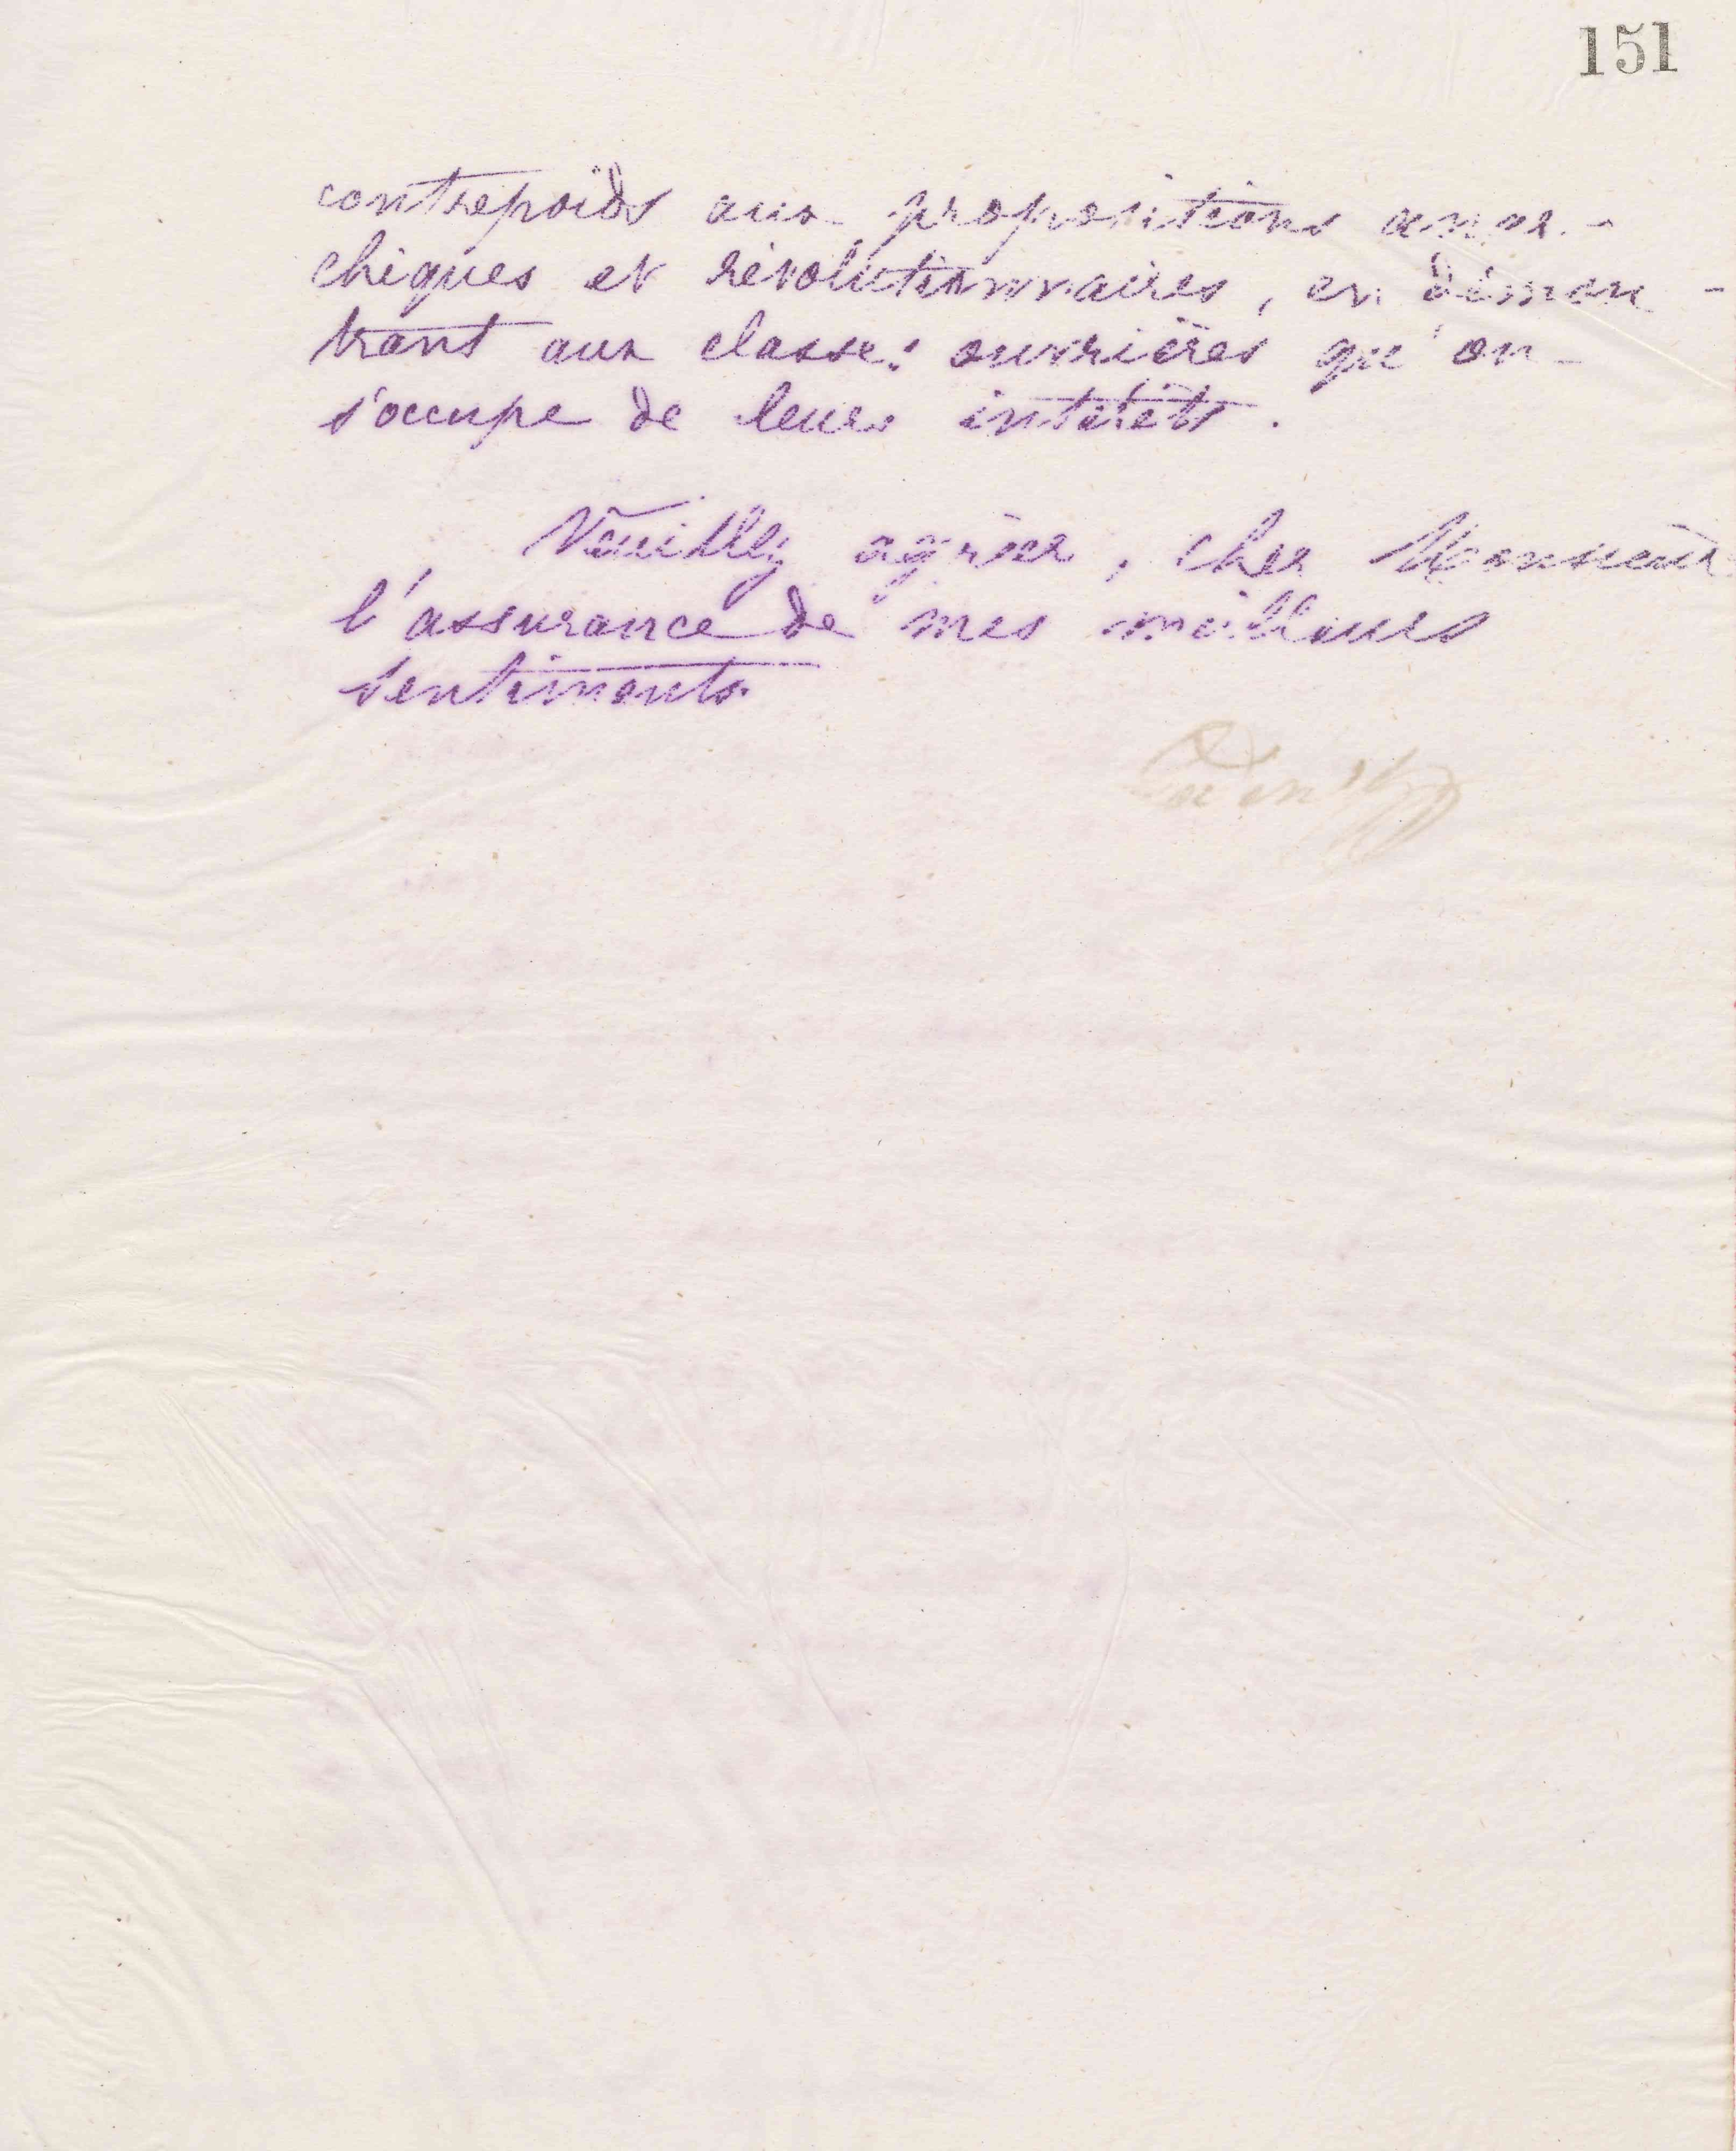 151
contrepoids aux propositions anar-
chiques et révolutionnaires, en démon-
trant aux classes ouvrières qu'on
s'occupe de leurs intérêts.
Veuillez agréer, cher Monsieur
l'assurance de mes meilleurs
sentiments